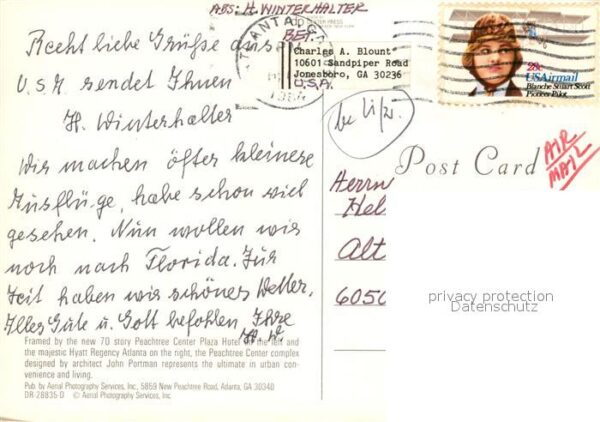 ABS: H. WINTERHALTER
BEI
Recht liebe Grüße aus
U.S.A. sendet Ihnen
H. Winterhalter
Wir machen öfter kleinere
Ausflüge, habe schon viel
gesehen. Nun wollen wir
noch nach Florida. Zur
Zeit haben wir schönes Wetter.
Alles Gute u. Gott befohlen Ihre
Framed by the new 70 story Peachtree Center Plaza Hotel on the left and
the majestic Hyatt Regency Atlanta on the right, the Peachtree Center complex
designed by architect John Portman represents the ultimate in urban con-
venience and living.
Pub. by Aerial Photography Services, Inc., 5859 New Peachtree Road, Atlanta, GA 30340
DR-28835-D © Aerial Photography Services, Inc.
ATLANTA
1984
Charles A. Blount
10601 Sandpiper Road
Jonesboro, GA 30236
U.S.A.
28c
USAirmail
Blanche Stuart Scott
Pioneer Pilot
Post Card
AIR
MAIL
Herrn
Hel
Alt
6050
privacy protection
Datenschutz